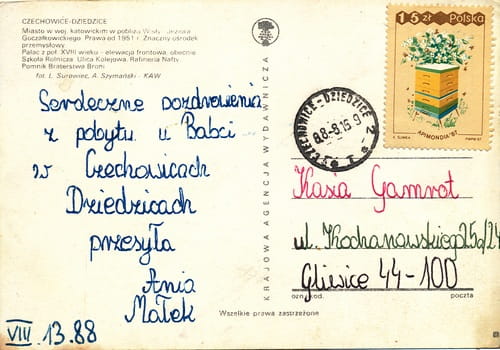 CZECHOWICE-DZIEDZICE
Miasto w woj. katowickim w pobliżu Wisły i Jeziora
Goczałkowickiego. Prawa od 1951 r. Znaczny ośrodek
przemysłowy.
Pałac z poł. XVIII wieku - elewacja frontowa, obecnie
Szkoła Rolnicza. Ulica Kolejowa. Rafineria Nafty
Pomnik Braterstwa Broni
fot. L. Surowiec, A. Szymański - KAW
Serdeczne pozdrowienia
z pobytu u Babci
w Czechowicach
Dziedzicach
przesyła
Ania
Małek
VIII 13.88
KRAJOWA AGENCJA WYDAWNICZA
CZECHOWICE-DZIEDZICE 2
88-8.15-9
15 zł Polska
APIMONDIA'87
PWPW'87
Kasia Gamrot
ul. Kochanowskiego 25d/24
Gliwice 44-100
ozn. kod.
poczta
Wszelkie prawa zastrzeżone